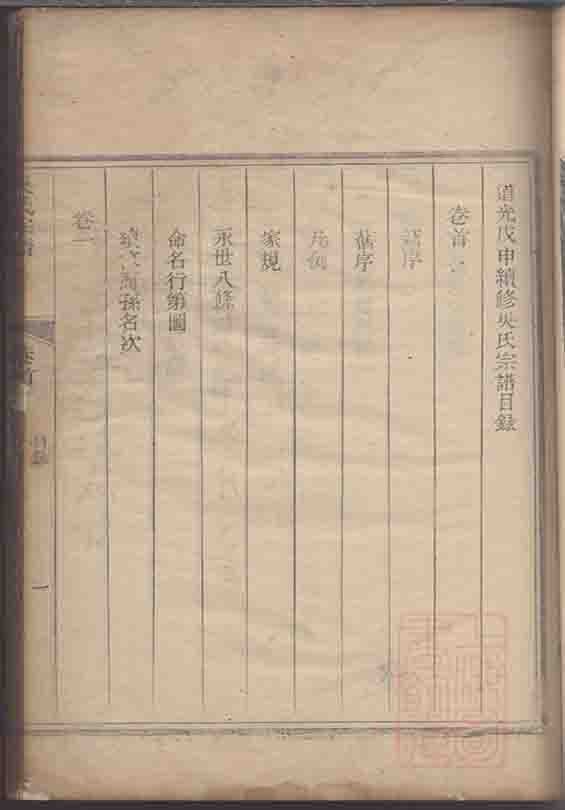 道光戊申續修吳氏宗譜目錄
卷首
新序
舊序
凡例
家規
永世八條
命名行第圖
孫名次
卷一
卷首
目錄
一